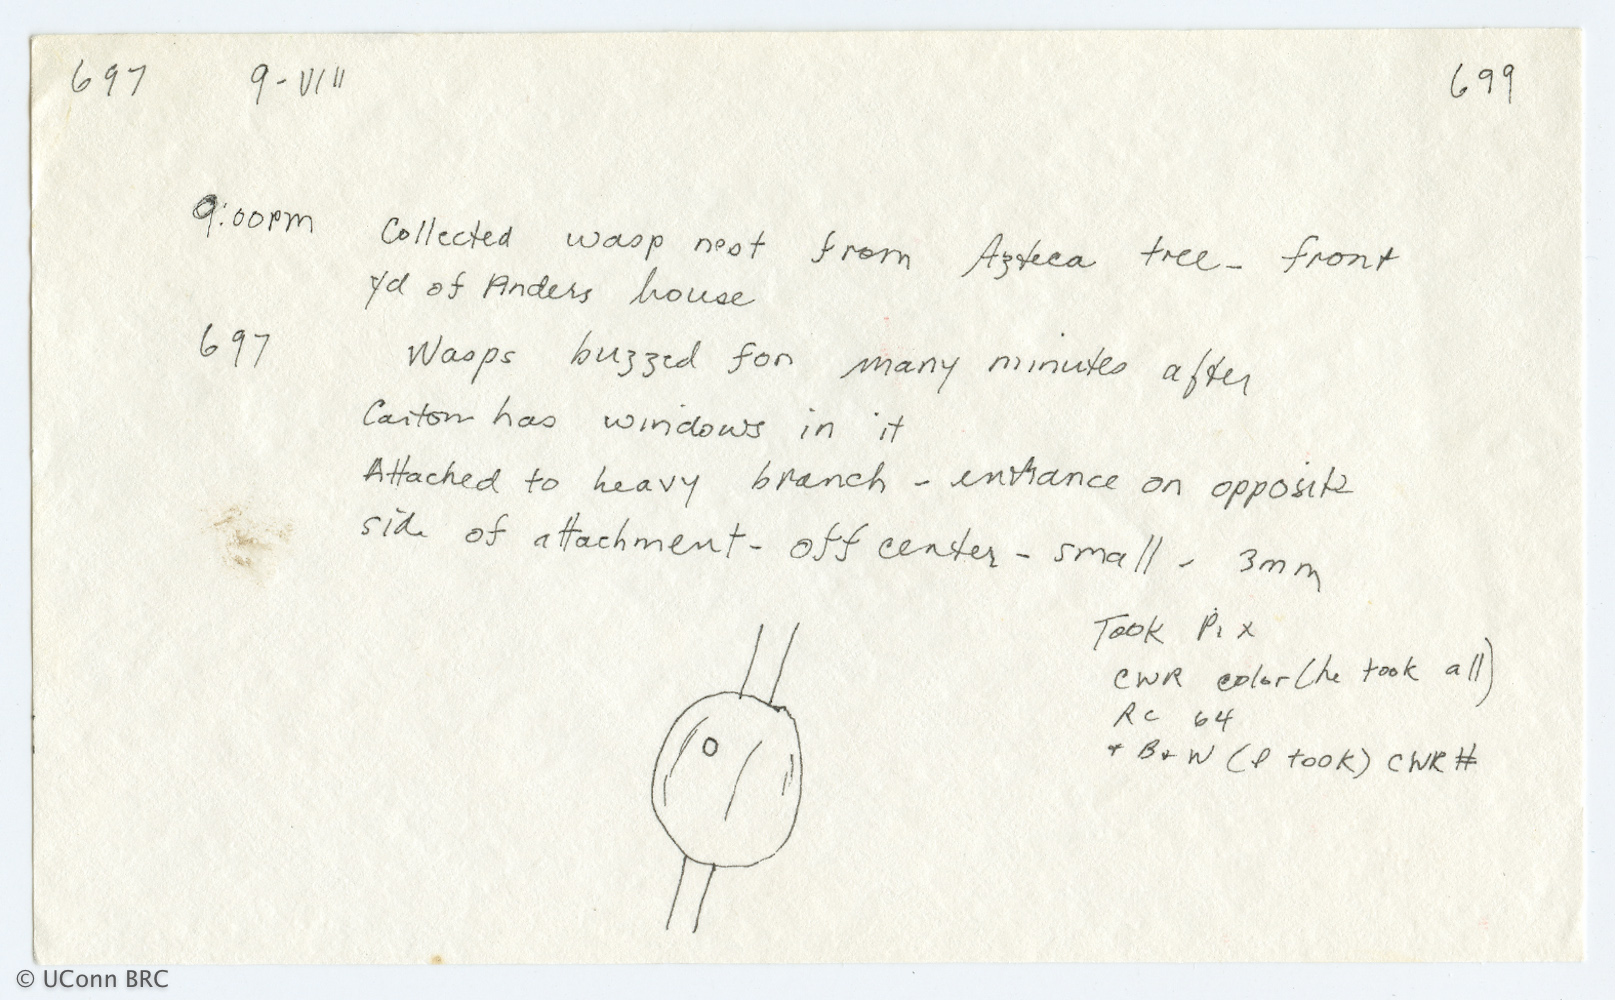 697 9-VIII 699
9:00pm Collected wasp nest from Azteca tree - front
yd of Anders house
697 Wasps buzzed for many minutes after
Carton has windows in it
Attached to heavy branch - entrance on opposite
side of attachment - off center - small - 3mm
Took Pix
CWR color (he took all)
RC 64
+ B+W (I took) CWR #
© UConn BRC